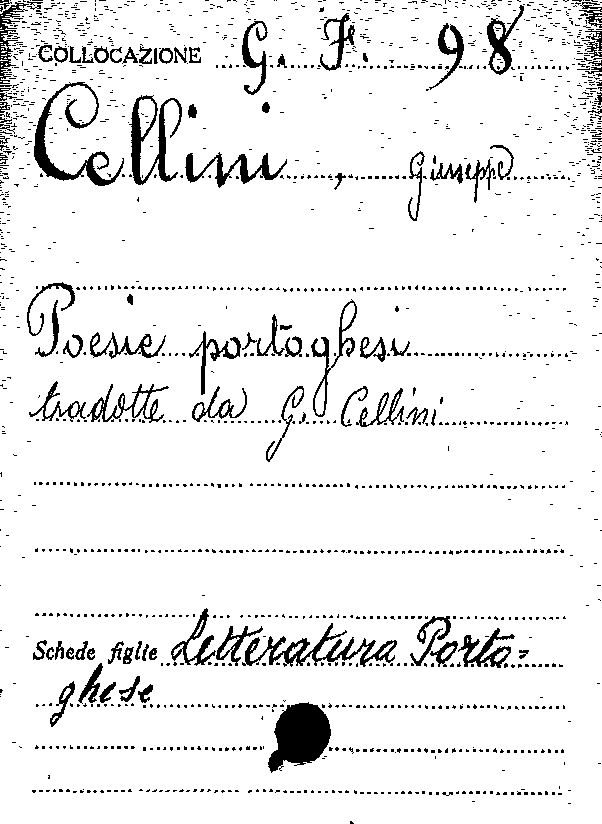 COLLOCAZIONE G. F. 98
Cellini, Giuseppe
Poesie portoghesi
tradotte da G. Cellini
Schede figlie Letteratura Porto=
ghese